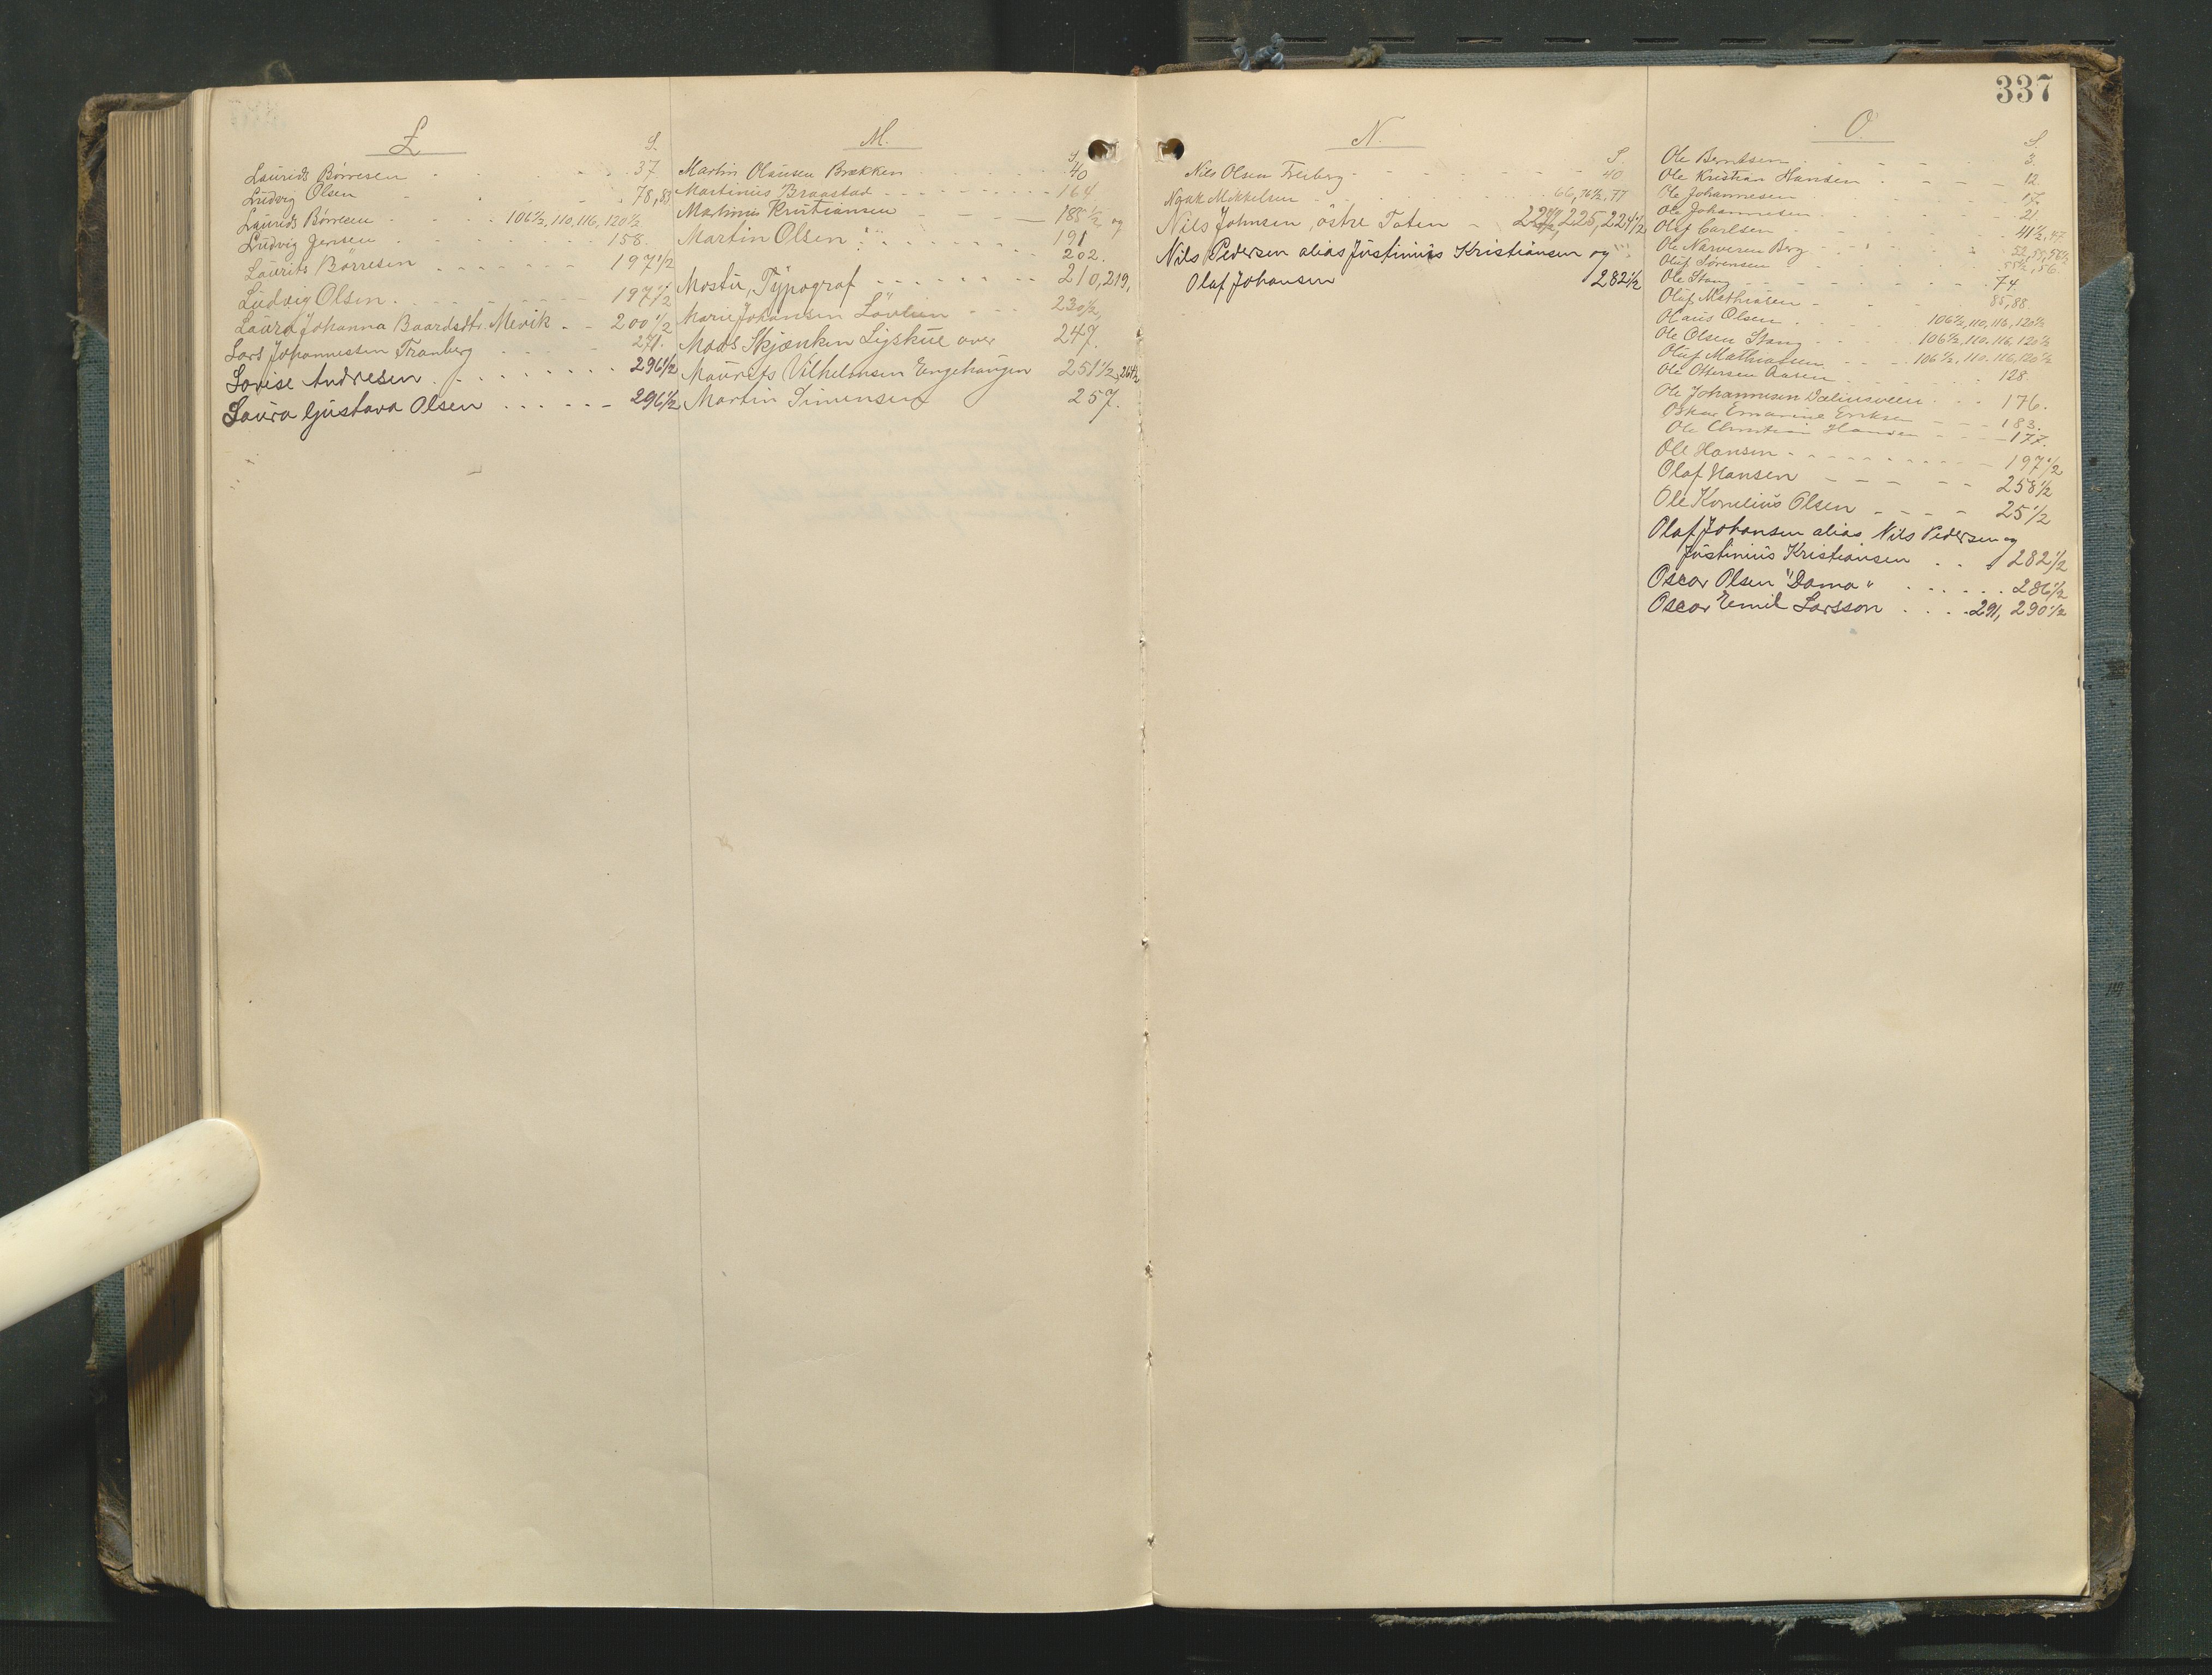 337
L
S.
Laurids Börresen 37
Ludvig Olsen 78, 83
Laurids Börresen 106½, 110, 116, 120½
Ludvig Jensen 158.
Laurits Börresen 197½
Ludvig Olsen 197½
Laura Johanna Baardsdtr. Mevik 200½
Lars Johannessen Tranberg 271.
Lovise Andresen 296½
Laura Gustava Olsen 296½
M.
S.
Martin Olausen Brækken 40
Martinius Braastad 164
Martinius Kristiansen 188½ og
191
Martin Olsen 202.
Mostü, Typograf 210, 219,
Marie Johansen Lövlien 230½,
Mads Skjænken Ligskue over 247.
Maurits Vilhelmsen Engehaugen 251½, 264½
Martin Simensen 257.
N.
S.
Nils Olsen Freiberg 40
Mikkelsen 66, 76½, 77
Nils Johnsen, östre Toten 225, 224½
Nils Pedersen alias Justinius Kristiansen og
Olaf Johansen 282½
O.
S.
Ole Berntsen 3.
Ole Kristian Hansen 12.
Ole Johannesen 17.
Ole Johannesen 21.
Oluf Carlsen 41½, 47
Ole Narvesen Berg
Oluf Sörensen 55½, 56.
Ole Stang 74.
Oluf Mathiasen 85, 88.
Olaus Olsen 106½, 110, 116, 120½
Ole Olsen Stang 106½, 110, 116, 120½
Oluf Mathiassen 106½, 110, 116, 120½
Ole Ottersen Aasen 128.
Ole Johannesen 176.
Oskar Eriksen 183.
Ole Christian Hansen 177.
Ole Hansen 197½
Olaf Hansen 258½
Ole Kornelius Olsen 25½
Olaf Johansen alias Nils Pedersen og
Justinius Kristiansen 282½
Oscar Olsen "Dama" 286½
Oscar Emil Larsson 291, 290½